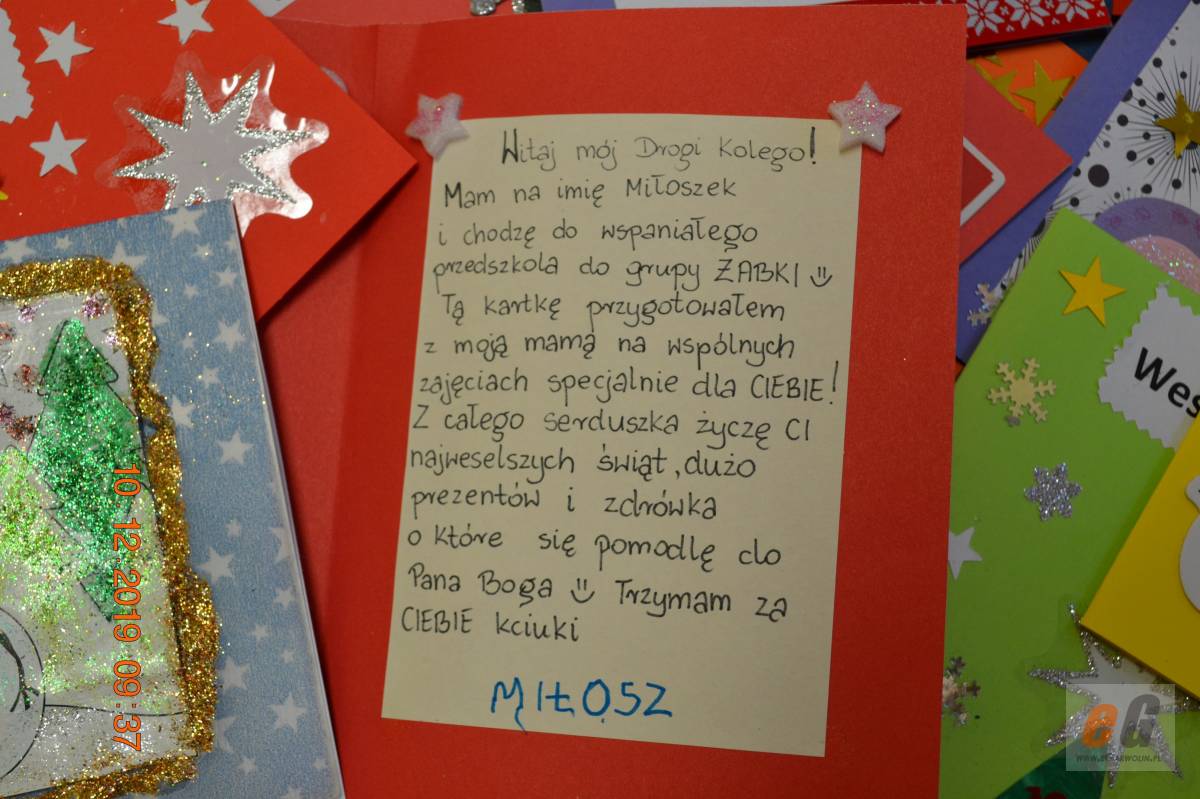 Witaj mój Drogi Kolego!
Mam na imię Miłoszek
i chodzę do wspaniałego
przedszkola do grupy ŻABKI
Tą kartkę przygotowałem
z moją mamą na wspólnych
zajęciach specjalnie dla CIEBIE!
Z całego serduszka życzę CI
najweselszych świąt, dużo
prezentów i zdrówka
o które się pomodlę do
Pana Boga Trzymam za
CIEBIE kciuki
MIŁOSZ
Wes
10.12.2019 09:37
eG
WWW.EGARWOLIN.PL